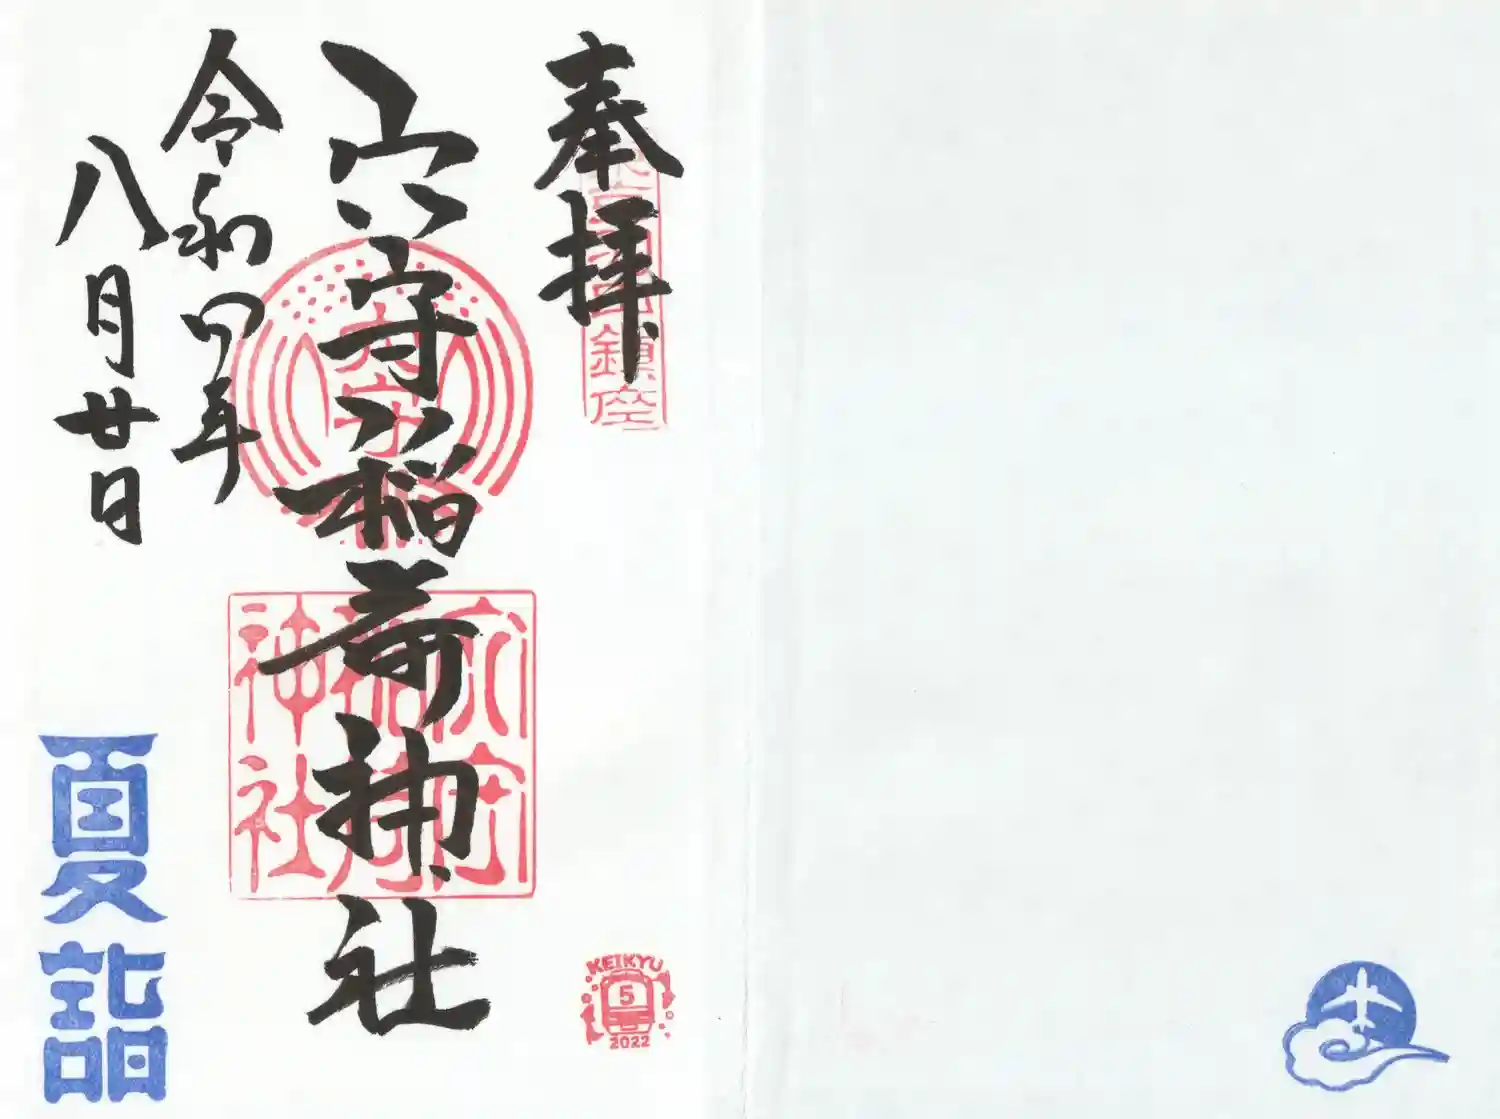 奉拝
鎮座
穴守稲荷神社
穴守
穴守
稲荷
神社
令和四年
八月廿日
夏詣
KEIKYU
5
2022